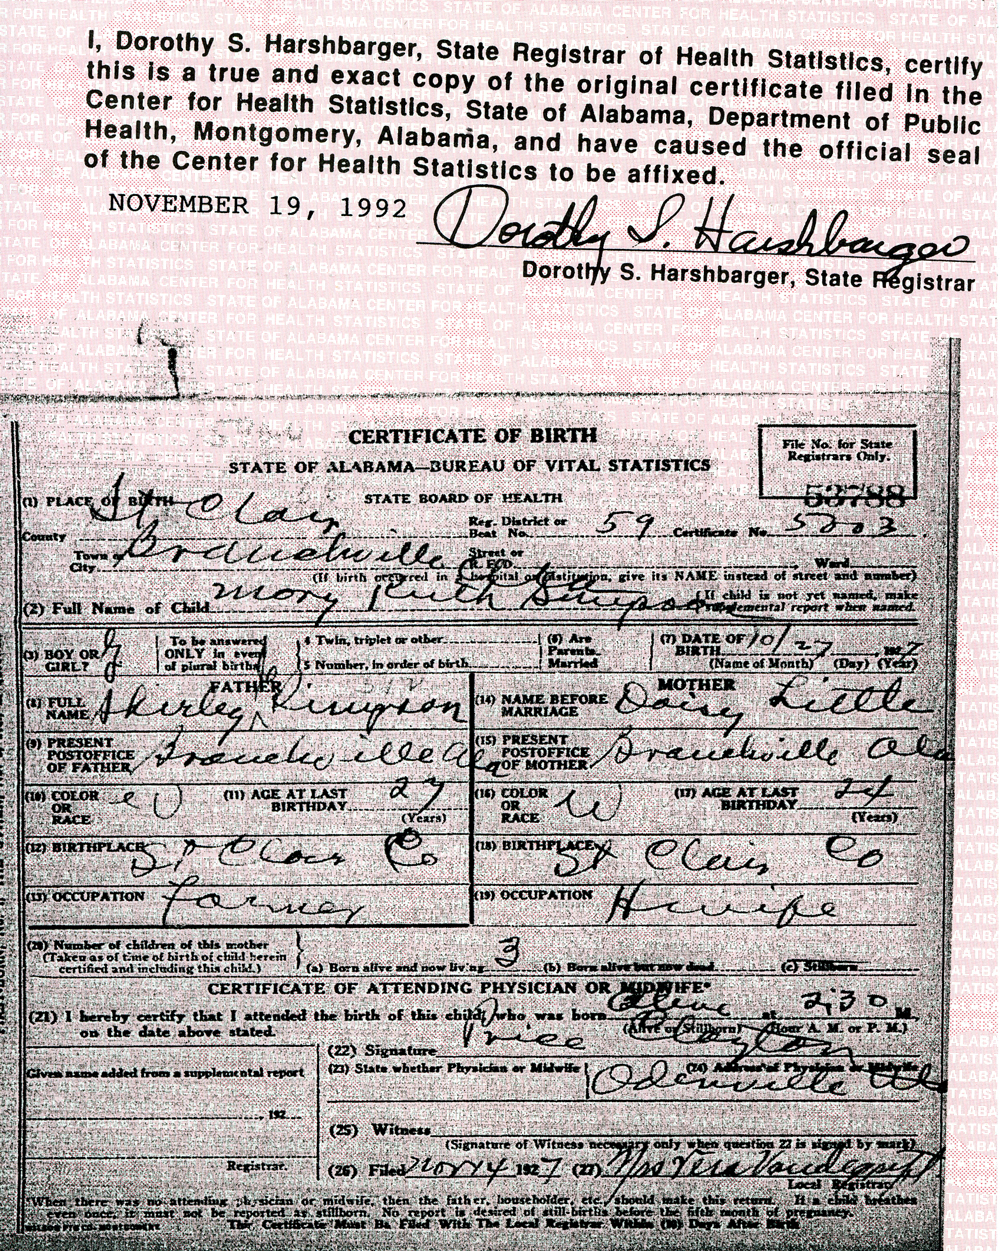 I, Dorothy S. Harshbarger, State Registrar of Health Statistics, certify
this is a true and exact copy of the original certificate filed in the
Center for Health Statistics, State of Alabama, Department of Public
Health, Montgomery, Alabama, and have caused the official seal
of the Center for Health Statistics to be affixed.
NOVEMBER 19, 1992
Dorothy S. Harshbarger
Dorothy S. Harshbarger, State Registrar
CERTIFICATE OF BIRTH
STATE OF ALABAMA—BUREAU OF VITAL STATISTICS
STATE BOARD OF HEALTH
File No. for State
Registrars Only.
53788
(1) PLACE OF BIRTH
County St Clair Reg. District or Beat No. 59 Certificate No. 5303
Town or City Branchville Street or R. F.D. Ward
(If birth occurred in a hospital or institution, give its NAME instead of street and number)
(2) Full Name of Child Mary Ruth Simpson (If child is not yet named, make
supplemental report when named.
(3) BOY OR GIRL? g To be answered ONLY in event of plural births
4 Twin, triplet or other
5 Number, in order of birth
(6) Are Parents Married
(7) DATE OF BIRTH 10/27 1927
(Name of Month) (Day) (Year)
FATHER
(8) FULL NAME Shirley Simpson
MOTHER
(14) NAME BEFORE MARRIAGE Daisy Little
(9) PRESENT POSTOFFICE OF FATHER Branchville Ala
(15) PRESENT POSTOFFICE OF MOTHER Branchville Ala
(10) COLOR OR RACE W (11) AGE AT LAST BIRTHDAY 27 (Years)
(16) COLOR OR RACE W (17) AGE AT LAST BIRTHDAY 24 (Years)
(12) BIRTHPLACE St Clair Co
(18) BIRTHPLACE St Clair Co
(13) OCCUPATION Farmer
(19) OCCUPATION H wife
(20) Number of children of this mother
(Taken as of time of birth of child herein
certified and including this child.)
(a) Born alive and now living 3 (b) Born alive but now dead (c) Stillborn
CERTIFICATE OF ATTENDING PHYSICIAN OR MIDWIFE*
(21) I hereby certify that I attended the birth of this child, who was born Alive at 2:30 M.
on the date above stated. (Alive or Stillborn) (Hour A. M. or P. M.)
(22) Signature Price Clayton
(23) State whether Physician or Midwife (24) Address of Physician or Midwife
Odenville Ala
Given name added from a supplemental report
192
Registrar.
(25) Witness
(Signature of Witness necessary only when question 22 is signed by mark)
(26) Filed Nov 4 1927 (27) Mrs Vera Vandegrift
Local Registrar
*When there was no attending physician or midwife, then the father, householder, etc., should make this return. If a child breathes
even once, it must not be reported as stillborn. No report is desired of still-births before the fifth month of pregnancy.
This Certificate Must Be Filed With The Local Registrar Within (10) Days After Birth